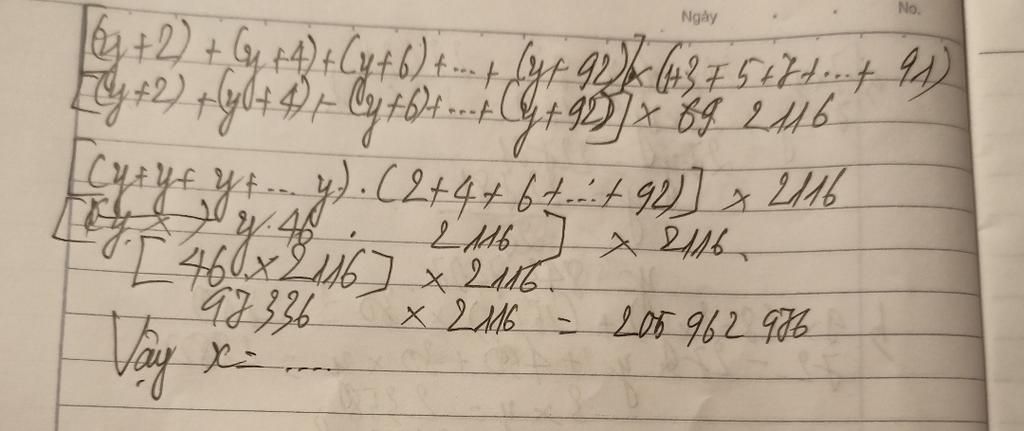 Ngày No.
[(y+2) + (y+4) + (y+6) + ... + (y+92)] × (1+3+5+7+...+ 91)
[(y+2) + (y+4) + (y+6) + ... + (y+92)] × 2116
[(y+y+ y+... y) . (2+4+6+...+92)] × 2116
[ y.46 . 2116 ] × 2116.
[ 46 × 2116] × 2116.
97336 × 2116 = 205 962 976
Vậy x = ....